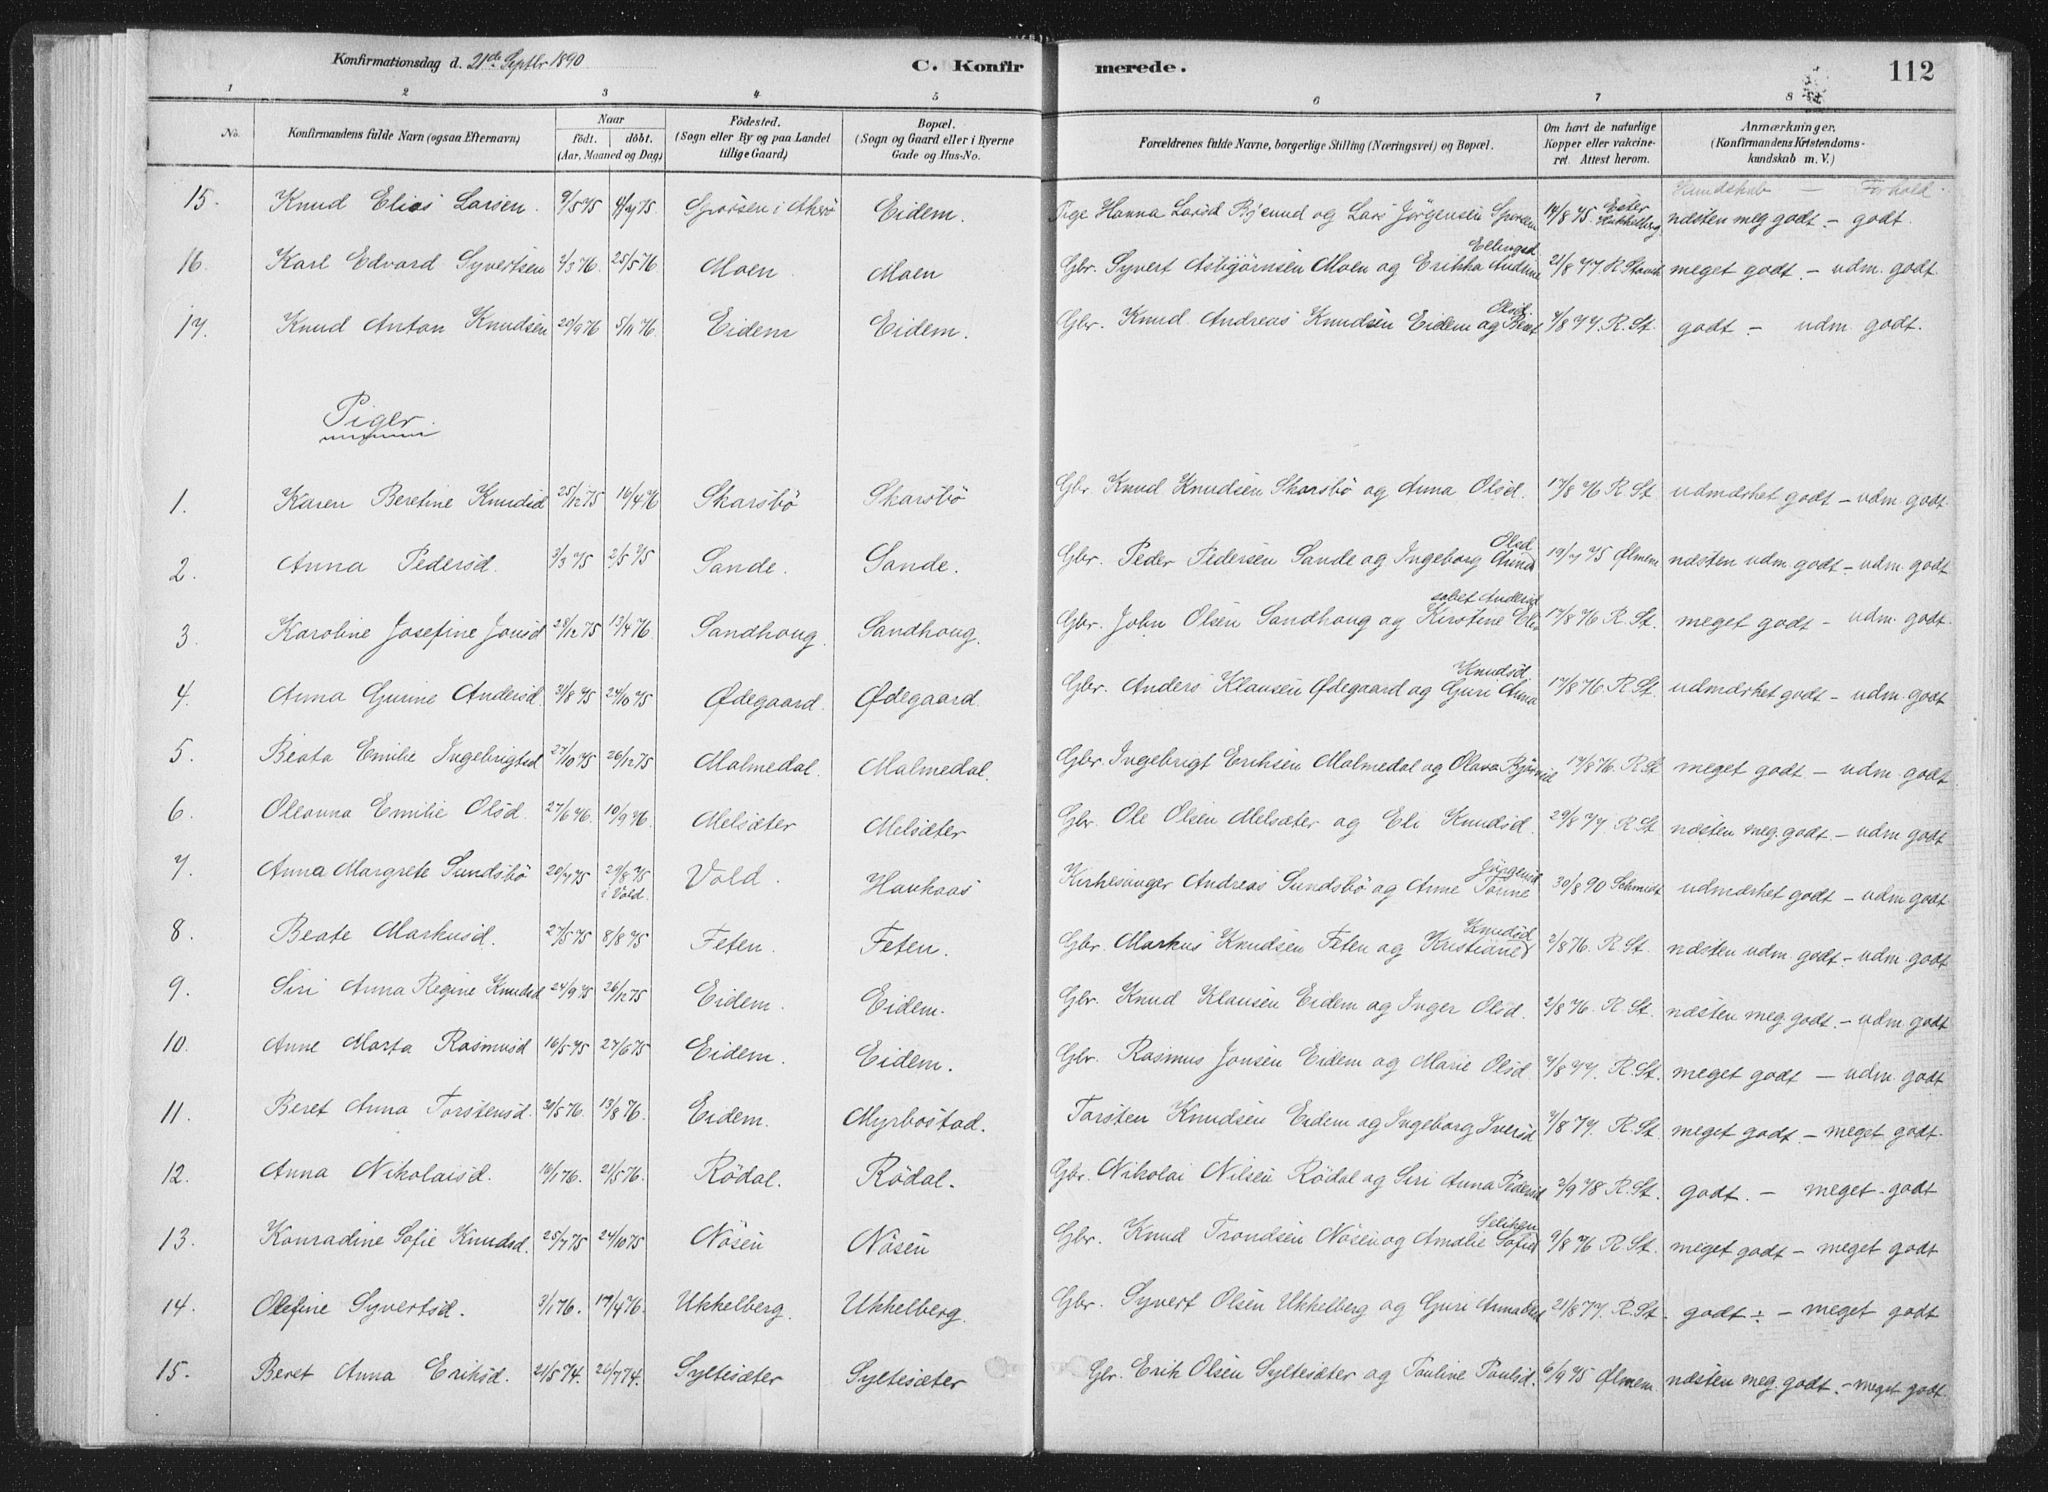 Konfirmationsdag d. 21de Septbr 1890 C. Konfirmerede. 112
1 2 3 4 5 6 7 8
No. Konfirmandens fulde Navn (ogsaa Efternavn) Naar födt. döbt. (Aar, Maaned og Dag) Födested. (Sogn eller By og paa Landet tillige Gaard) Bopæl. (Sogn og Gaard eller i Byerne Gade og Hus-No. Forældrenes fulde Navne, borgerlige Stilling (Næringsvei) og Bopæl. Om havt de naturlige Kopper eller vakcineret. Attest herom. Anmærkninger. (Konfirmandens Kristendomskundskab m. V.)
Kundskab — Forhold
15. Knud Elias Larsen. 9/5 75 4/7 75 Sporsen i Akerö Eidem. Pige Hanna Larsd Bjerund og Lars Jørgensen Sporsem 14/8 75. Ester Hukkelberg næsten meg godt. – godt.
16. Karl Edvard Syvertsen 2/3 76. 25/5 76. Moen Moen Gbr. Syvert Asbjørnsen Moen og Erikka Andrine Ellingsd. 21/8 77 R. Stavik meget godt. – udm. godt.
17. Knud Anton Knudsen 20/9 76 5/11 76. Eidem Eidem. Gbr. Knud Andreas Knudsen Eidem og Beret Olsd. 7/8 77. R. St. godt – udm godt.
Piger.
1. Karen Beretine Knudsd 25/12 75 16/4 76 Skarsbö Skarsbö Gbr. Knud Knudsen Skarsbö og Anna Olsd. 17/8 76 R St. udmærket godt – udm. godt.
2. Anna Pedersd. 3/3 75 2/5 75 Sande. Sande. Gbr. Peder Pedersen Sande og Ingeborg Anna Olsd 19/7 75 Ølmem næsten udm. godt – udm. godt
3. Karoline Josefine Jonsd 28/12 75 13/4 76 Sandhoug. Sandhoug. Gbr. John Olsen Sandhoug og Kirstine Elisabet Andersd 17/8 76 R. St. meget godt – udm. godt.
4. Anna Gurine Andersd. 31/8 75 24/10 75 Ødegaard. Ødegaard. Gbr. Anders Klausen Ødegaard og Guri Anna Knudsd 17/8 76. R St. udmærket godt – udm. godt
5. Beata Emilie Ingebrigtsd 27/10 75 26/12 75 Malmedal. Malmedal. Gbr. Ingebrigt Eriksen Malmedal og Olava Bjørnsd 17/8 76. R St. meget godt – udm. godt.
6. Oleanna Emilie Olsd. 27/6 76. 10/9 76. Melsæter Melsæter Gbr. Ole Olsen Melsæter og Eli Knudsd. 29/8 77. R. St næsten meg. godt. – udm godt
7. Anna Margrete Sundsbö 20/7 75 29/8 75 i Vold. Vold. Haukaas Kirkesanger Andreas Sundsbö og Anne Tonne Jörgensd. 30/8 90 Schmidt udmærket godt – udm. godt.
8. Beate Markusd. 27/5 75 8/8 75 Feten. Feten. Gbr. Markus Knudsen Feten og Kristiane Knudsd 2/8 76. R. St. næsten udm. godt. – udm. godt.
9. Siri Anna Regine Knudsd 24/9 75 26/12 75 Eidem. Eidem. Gbr. Knud Klausen Eidem og Inger Olsd. 2/8 76. R. St. næsten meg. godt. – udm. godt
10. Anne Marta Rasmusd 16/5 75 27/6 75 Eidem. Eidem. Gbr. Rasmus Jonsen Eidem og Marie Olsd. 7/8 77. R. St. meget godt – udm. godt
11. Beret Anna Torstensd. 30/5 76. 13/8 76. Eidem. Myrbostad. Torsten Knudsen Eidem og Ingeborg Iversd 7/8 77. R. St. meget godt. – meget godt.
12. Anna Nikolaisd. 16/1 76. 21/5 76. Rödal. Rödal. Gbr. Nikolai Nilsen Rödal og Siri Anna Pedersd 2/9 78 R. St. godt. – meget godt
13. Konradine Sofie Knudsd. 25/7 75 24/10 75 Nösen Nösen Gbr. Knud Trondsen Nösen og Amalie Sofie Seliken 9/8 76 R. St. meget godt – meget godt
14. Olefine Syvertsd. 3/1 76. 17/4 76. Ukkelberg. Ukkelberg. Gbr. Syvert Olsen Ukkelberg og Guri Anna Olsd 21/8 77. R. St. godt ÷ – meget godt
15. Beret Anna Eriksd. 21/5 74. 26/7 74. Syltesæter Syltesæter Gbr. Erik Olsen Syltesæter og Pauline Paulsd. 6/9 75 Ølmem. næsten meg. godt. – meget godt.